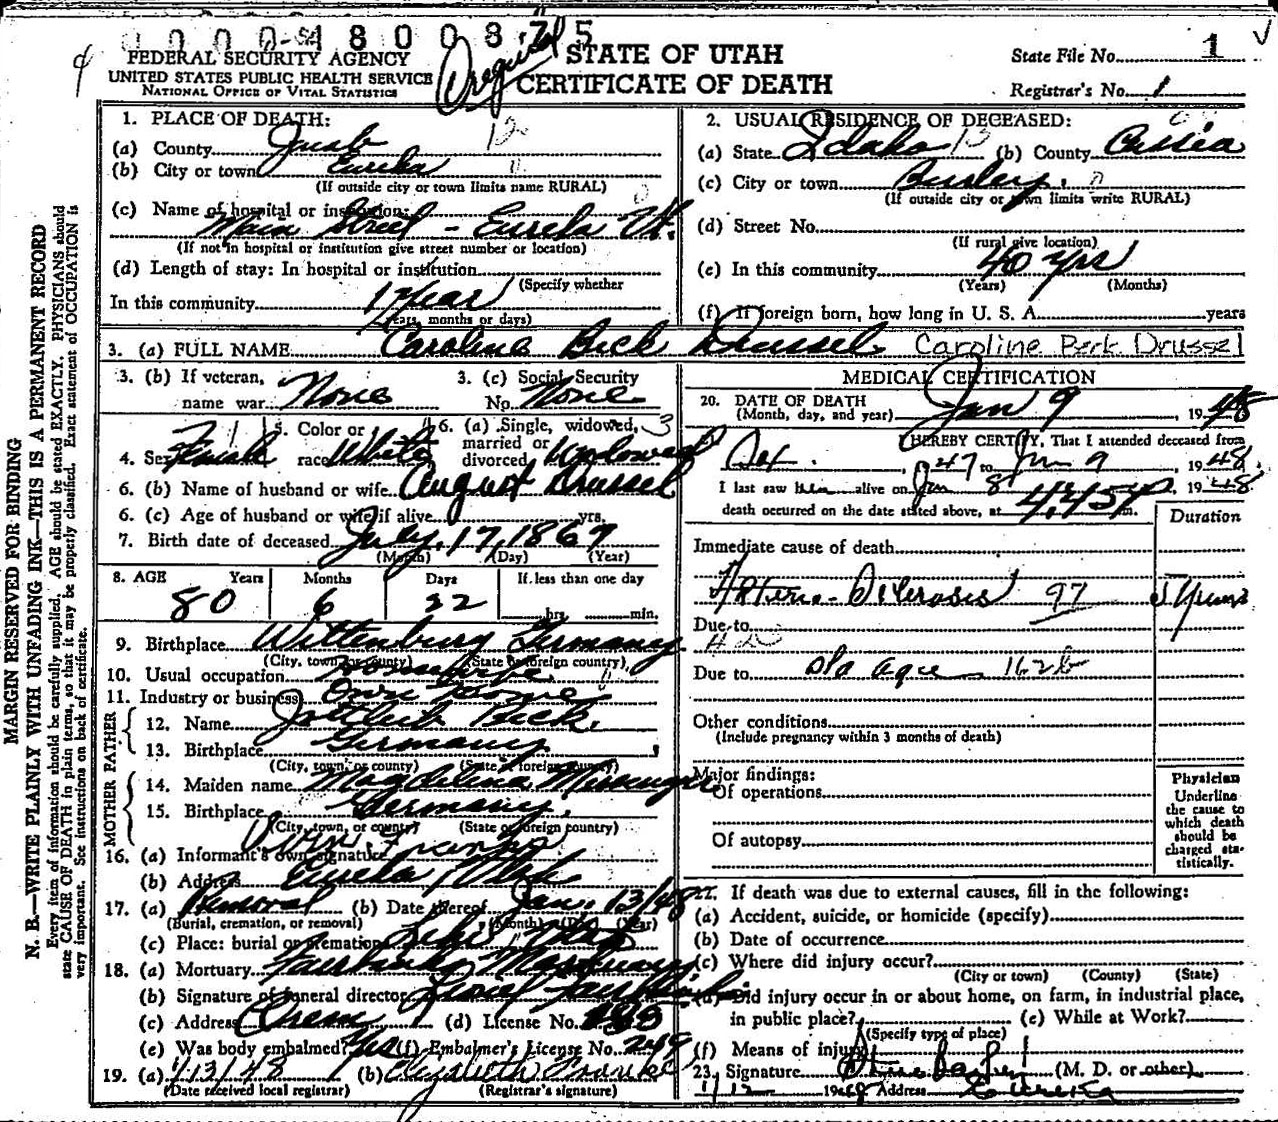 0000-4800875
FEDERAL SECURITY AGENCY
UNITED STATES PUBLIC HEALTH SERVICE
NATIONAL OFFICE OF VITAL STATISTICS
STATE OF UTAH
CERTIFICATE OF DEATH
State File No. 1
Registrar's No. 1
MARGIN RESERVED FOR BINDING
N. B.—WRITE PLAINLY WITH UNFADING INK—THIS IS A PERMANENT RECORD
Every item of information should be carefully supplied. AGE should be stated EXACTLY. PHYSICIANS should
state CAUSE OF DEATH in plain terms, so that it may be properly classified. Exact statement of OCCUPATION is
very important. See instructions on back of certificate.
1. PLACE OF DEATH:
(a) County Juab
(b) City or town Eureka
(If outside city or town limits name RURAL)
(c) Name of hospital or institution:
Main Street - Eureka Ut.
(If not in hospital or institution give street number or location)
(d) Length of stay: In hospital or institution
(Specify whether
In this community 1 Year
years, months or days)
2. USUAL RESIDENCE OF DECEASED:
(a) State Idaho (b) County Cassia
(c) City or town Burley.
(If outside city or town limits write RURAL)
(d) Street No.
(If rural give location)
(e) In this community 40 yrs
(Years) (Months)
(f) If foreign born, how long in U. S. A. years
3. (a) FULL NAME Caroline Beck Drussel Caroline Beck Drussel
3. (b) If veteran, name war None
3. (c) Social Security No. None
4. Sex Female 5. Color or race White 6. (a) Single, widowed, married or divorced Widowed
6. (b) Name of husband or wife August Drussel
6. (c) Age of husband or wife if alive yrs.
7. Birth date of deceased July. 17, 1867
(Month) (Day) (Year)
8. AGE Years Months Days If less than one day
80 6 22 hrs. min.
9. Birthplace Wittenburg Germany
(City, town or county) (State or foreign country)
10. Usual occupation Housewife
11. Industry or business Own Home
FATHER
12. Name Gottlieb Beck.
13. Birthplace Germany
(City, town, or county) (State of foreign country)
MOTHER
14. Maiden name Magdelina
15. Birthplace Germany.
(City, town, or county) (State or foreign country)
16. (a) Informant's own signature
(b) Address Eureka Utah
17. (a) Removal (b) Date thereof Jan. 13/48
(Burial, cremation, or removal) (Month) (Day) (Year)
(c) Place: burial or cremation Lehi, Utah
18. (a) Mortuary Fairbanks Mortuary
(b) Signature of funeral director
(c) Address Orem (d) License No.
(e) Was body embalmed? Yes (f) Embalmer's License No. 249
19. (a) 1/13/48 (b) Elizabeth
(Date received local registrar) (Registrar's signature)
MEDICAL CERTIFICATION
20. DATE OF DEATH
(Month, day, and year) Jan 9, 1948
I HEREBY CERTIFY, That I attended deceased from
, 1947 to Jan 9 1948
I last saw her alive on Jan 8, 1948
death occurred on the date stated above, at 4:45 P m.
Duration
Immediate cause of death
Arterio-Sclerosis 97 5 Years
Due to
Due to Old age 162b
Other conditions
(Include pregnancy within 3 months of death)
Major findings:
Of operations
Of autopsy
Physician
Underline
the cause to
which death
should be
charged sta-
tistically.
22. If death was due to external causes, fill in the following:
(a) Accident, suicide, or homicide (specify)
(b) Date of occurrence
(c) Where did injury occur?
(City or town) (County) (State)
(d) Did injury occur in or about home, on farm, in industrial place,
in public place? (e) While at Work?
(Specify type of place)
(f) Means of injury
23. Signature (M. D. or other)
1/12 1948 Address Eureka